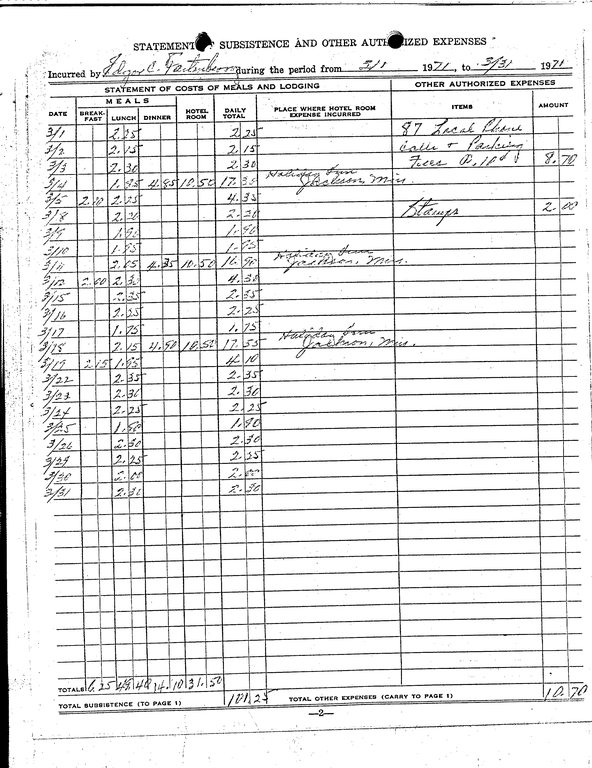 STATEMENT OF SUBSISTENCE AND OTHER AUTHORIZED EXPENSES
Incurred by Edgar C. during the period from 3/1 1971, to 3/31 1971
STATEMENT OF COSTS OF MEALS AND LODGING OTHER AUTHORIZED EXPENSES
DATE MEALS HOTEL ROOM DAILY TOTAL PLACE WHERE HOTEL ROOM EXPENSE INCURRED ITEMS AMOUNT
BREAKFAST LUNCH DINNER
3/1 2.25 2.25 87 Local Phone
3/2 2.15 2.15 Calls + Parking
3/3 2.30 2.30 Fees @ 10¢ 8.70
3/4 1.95 4.85 10.50 17.30 Holiday Inn Jackson, Miss.
3/5 2.10 2.25 4.35
3/8 2.20 2.20 Stamps 2.00
3/9 1.90 1.90
3/10 1.95 1.95
3/11 2.05 4.35 10.50 16.90 Holiday Inn Jackson, Miss.
3/12 2.00 2.30 4.30
3/15 2.35 2.35
3/16 2.25 2.25
3/17 1.75 1.75
3/18 2.15 4.90 10.50 17.55 Holiday Inn Jackson, Miss.
3/19 2.15 1.95 4.10
3/22 2.35 2.35
3/23 2.30 2.30
3/24 2.25 2.25
3/25 1.90 1.90
3/26 2.30 2.30
3/29 2.25 2.25
3/30 2.00 2.00
3/31 2.30 2.30
TOTALS 6.25 49.40 14.10 31.50
TOTAL SUBSISTENCE (TO PAGE 1) 101.25 TOTAL OTHER EXPENSES (CARRY TO PAGE 1) 10.70
—2—